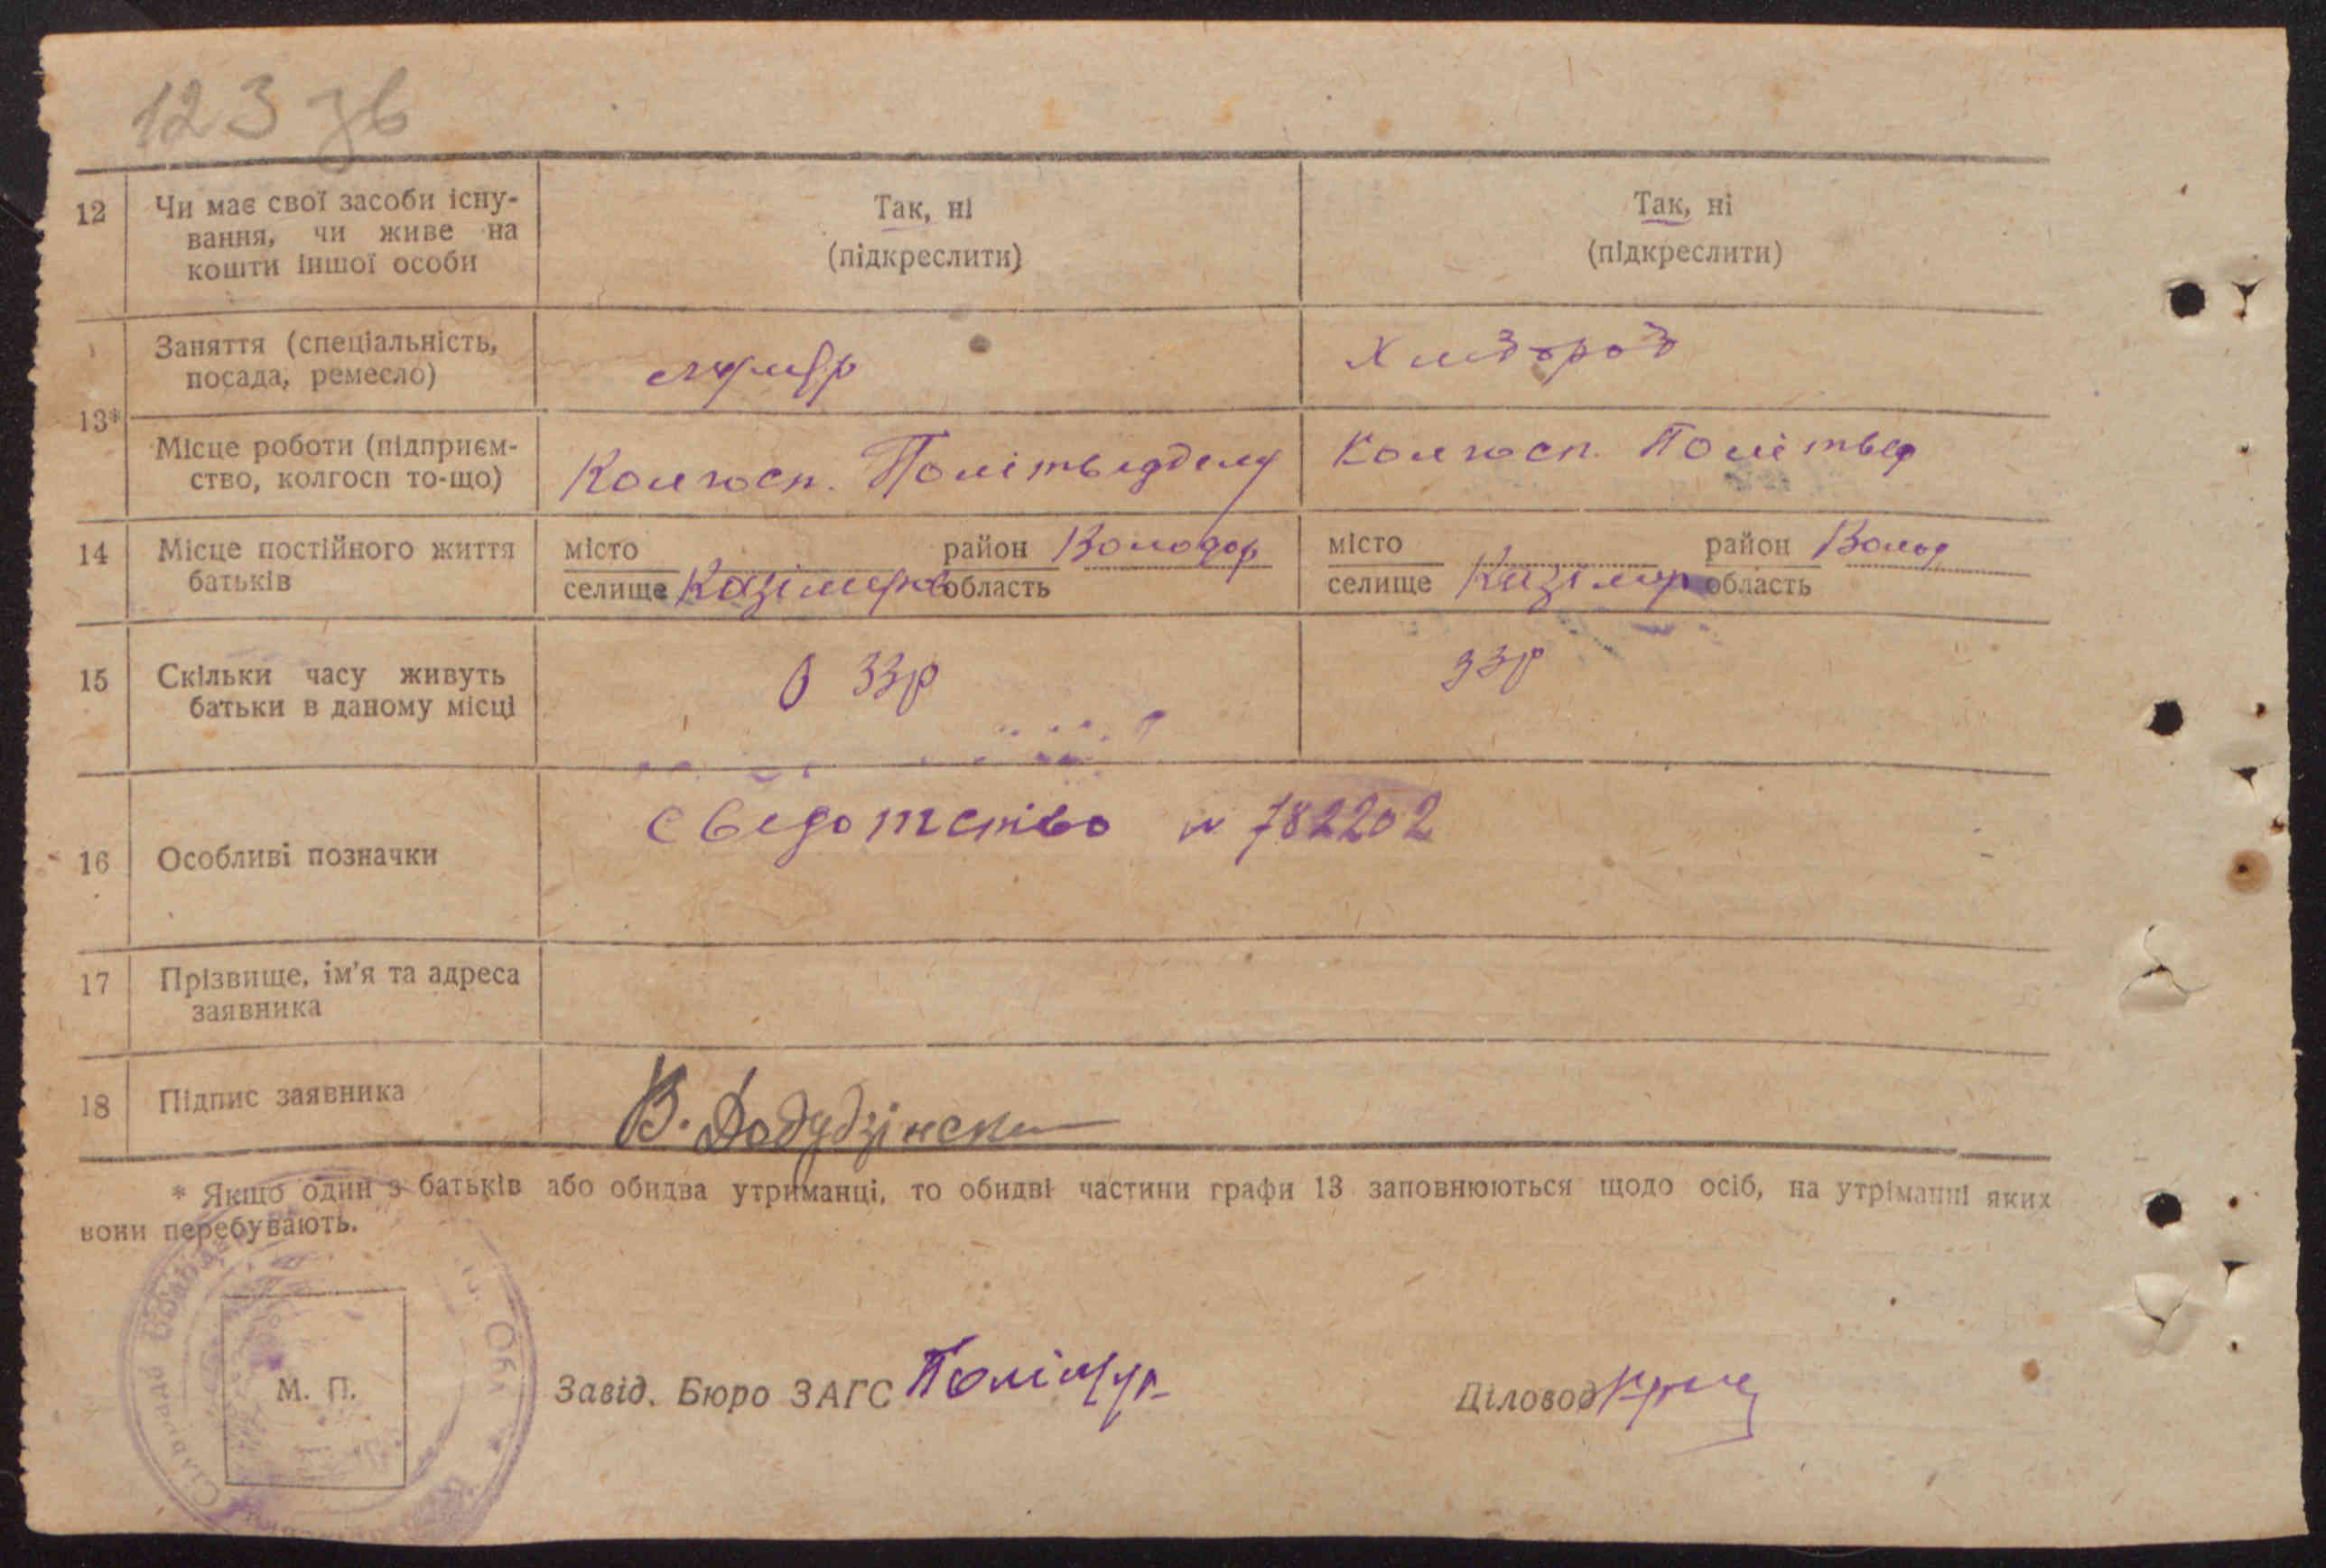 123 зв
12 Чи має свої засоби існу-
вання, чи живе на
кошти іншої особи
Так, ні
(підкреслити)
Так, ні
(підкреслити)
13*
Заняття (спеціальність,
посада, ремесло)
Хлібороб
Місце роботи (підприєм-
ство, колгосп то-що)
Колгосп. Політвідделу
Колгосп. Політвід
14 Місце постійного життя
батьків
місто
селище Казімирів
район Володар
область
місто
селище Казімир
район Волод
область
15 Скільки часу живуть
батьки в даному місці
33р
33р
16 Особливі позначки
Сведотство № 782202
17 Прізвище, ім'я та адреса
заявника
18 Підпис заявника
В. Додудзінски
* Якщо один з батьків або обидва утриманці, то обидві частини графи 13 заповнюються щодо осіб, на утріманні яких
вони перебувають.
М. П.
Завід. Бюро ЗАГС
Діловод